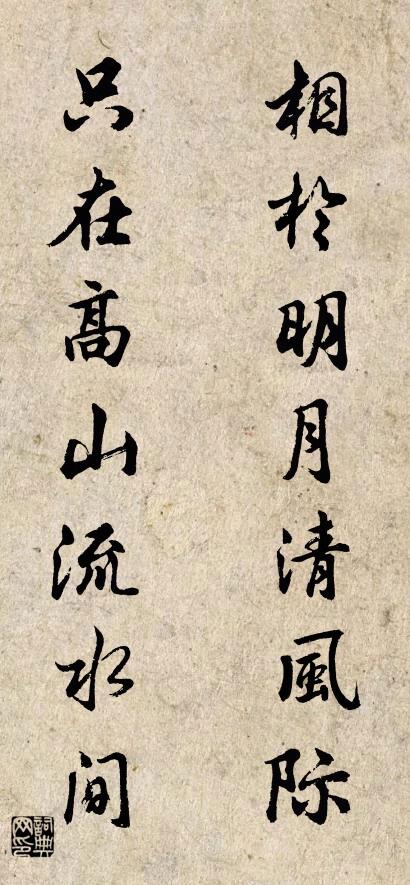 相於明月清風际
只在高山流水间
詞典网印